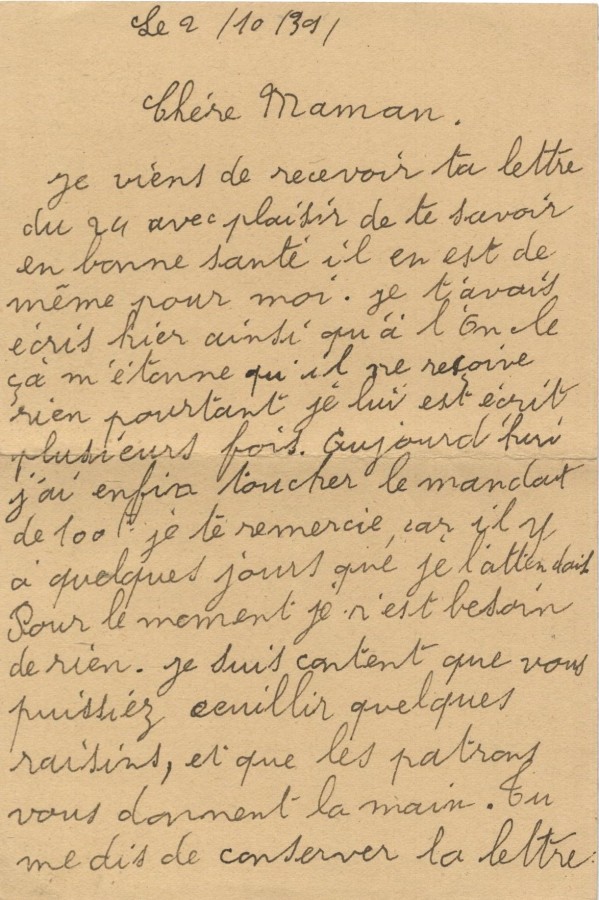 Le 2/10/39/
Chére Maman.
Je viens de recevoir ta lettre
du 24 avec plaisir de te savoir
en bonne santé il en est de
même pour moi. Je t'avais
écris hier ainsi qu'à l'Oncle
ça m'étonne qu'il ne reçoive
rien pourtant je lui est écrit
plusieurs fois. Aujourd'hui
j'ai enfin toucher le mandat
de 100 f. je te remercie, car il y
a quelques jours que je l'attendais.
Pour le moment je n'est besoin
de rien. Je suis content que vous
puissiez ceuillir quelques
raisins, et que les patrons
vous donnent la main. Tu
me dis de conserver la lettre